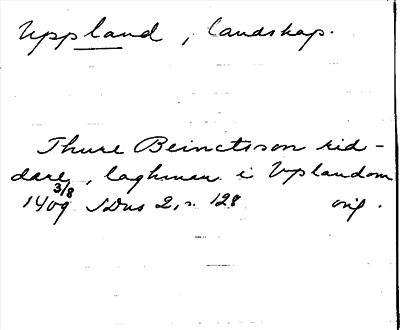 Uppland, landskap.
Thure Beinctsson rid-
dare, laghman i Vplandom
3/8
1409 SDns 2, s. 128 orig.